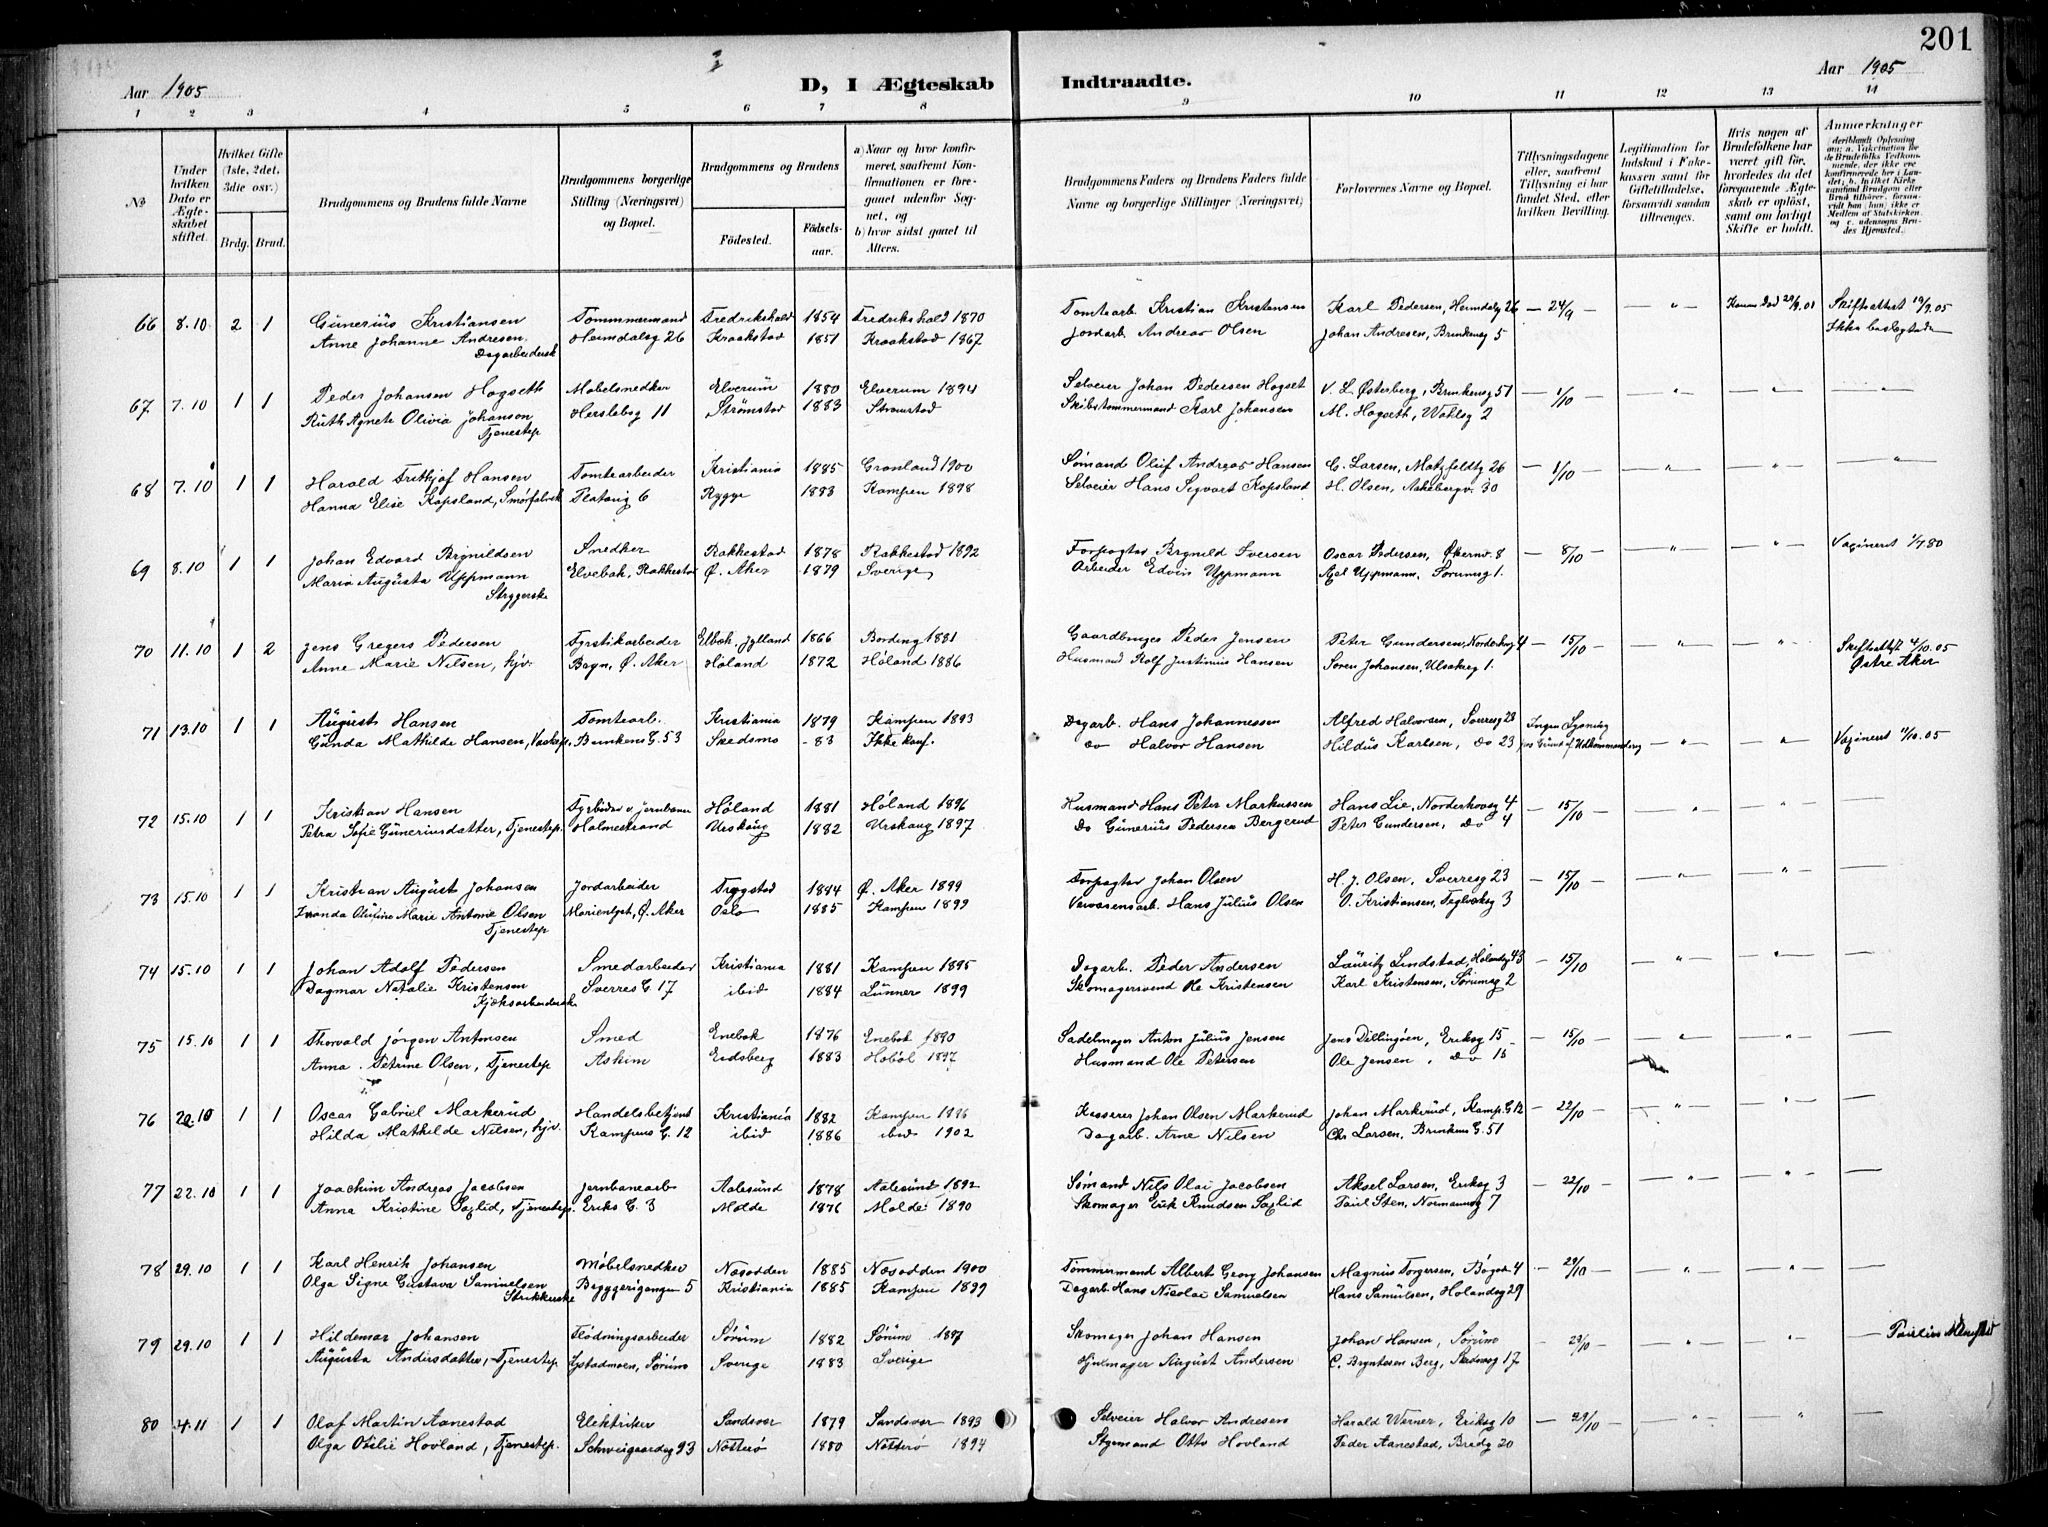 201
Aar 1905
D, I Ægteskab Indtraadte.
Aar 1905
1 2 3 4 5 6 7 8 9 10 11 12 13 14
№
Under hvilken Dato er Ægteskabet stiftet.
Hvilket Gifte (1ste, 2det, 3die osv.)
Brdg. Brud.
Brudgommens og Brudens fulde Navne
Brudgommens borgerlige Stilling (Næringsvei) og Bopæl.
Brudgommens og Brudens
Fødested. Fødselsaar.
a) Naar og hvor konfirmeret, saafremt Konfirmationen er foregaaet udenfor Sognet, og
b) hvor sidst gaaet til Alters.
Brudgommens Faders og Brudens Faders fulde Navne og borgerlige Stillinger (Næringsvei)
Forlovernes Navne og Bopæl.
Tillysningsdagene eller, saafremt Tillysning ei har fundet Sted, efter hvilken Bevilling.
Legitimation for Indskud i Enkekassen samt for Giftetilladelse, forsaavidt saadan tiltrænges.
Hvis nogen af Brudefolkene har været gift før, hvorledes da det foregaaende Ægteskab er opløst, samt om lovligt Skifte er holdt.
Anmærkninger
66 8.10 2 1 Gunerius Kristiansen Tommermand Fredrikshald 1854 Fredrikshald 1870 Tomtearb. Kristian Kristensen Karl Pedersen, Heimdalsg 26 — 24/9 — — " — Konen død 22/9.01 Skifteattest 12/9.05
Anne Johanne Andresen, Heimdalsg 26 Kraakstad 1851 Kraakstad 1867 Jordarb. Andreas Olsen Johan Andresen, Brinkensg 5 Ikke beslegtede
Dagarbeiderske
67 7.10 1 1 Peder Johansen Hogseth Møbelsnedker Elverum 1880 Elverum 1894 Selveier Johan Pedersen Hogset V. L. Østerberg, Brinkensg 51 — 1/10 — — " —
Ruth Agnete Olivia Johanson Herslebsg 11 Strømstad 1883 Strømstad Skibstømmermand Karl Johansen M. Hogseth, Wahlsg 2
Tjenestep
68 7.10 1 1 Harald Frithjof Hansen Tomtearbeider Kristiania 1885 Grønland 1900 Sømand Oluf Andreas Hansen C. Larsen, Motzfeldtg 26 — 1/10 — — " —
Hanna Elise Kopsland, Smørfabrik 6 Rygge 1883 Kampen 1898 Selveier Hans Sigvart Kopsland H. Olsen, Aakebergv. 30
69 8.10 1 1 Johan Edvard Brynildsen Snedker Rakkestad 1878 Rakkestad 1892 Forpagter Brynild Iversen Oscar Pedersen, Økernv. 8 — 8/10 — — " — Vaxineret 1/7 80
Maria Augusta Uppmann Elvebak, Rakkestad Ø. Aker 1879 Sverige Arbeider Edvin Uppmann Axel Uppmann, Sørumsg 1.
Strygerske
70 11.10 1 2 Jens Gregers Pedersen Fyrstikarbeider Elbæk, Jylland 1866 Bording 1881 Gaardbruger Peder Jensen Peter Gundersen, Norderhovg 4 — 15/10 — — " — Skifteattest 4/10.05
Anne Marie Nilsen, hjv. Bryn, Ø. Aker Høland 1872 Høland 1886 Husmand Rolf Justinius Hansen Søren Johansen, Ulsaksg 1. Østre Aker
71 13.10 1 1 August Hansen Tomtearb. Kristiania 1879 Kampen 1893 Dagarb. Hans Johannessen Alfred Halvorsen, Sverresg 23 Ingen Lysning
Gunda Mathilde Hansen, Vaskep. Brinkens G. 53 Skedsmo - 83 Ikke konf. do Halvor Hansen Hildus Karlsen, do 23 — " — Vaxineret 11/10.05
72 15.10 1 1 Kristian Hansen Fyrbøder v. Jernbanen Høland 1881 Høland 1896 Husmand Hans Peter Markussen Hans Lie, Norderhovsg 4 — 15/10 — — " —
Petra Sofie Guneriusdatter, Tjenestep. Holmestrand Urskoug 1882 Urskoug 1897 Do Gunerius Pedersen Bergerud Peter Gundersen, do 4
73 15.10 1 1 Kristian August Johansen Jordarbeider Trygstad 1884 Ø. Aker 1899 Forpagter Johan Olsen H. J. Olsen, Sverresg 23 — 15/10 — — " —
Olufine Marie Antonie Olsen Marienlyst, Ø. Aker Oslo 1885 Kampen 1899 Hans Julius Olsen O. Kristiansen, Teglverksg 3
Tjenestep
74 15.10 1 1 Johan Adolf Pedersen Smedarbeider Kristiania 1881 Kampen 1895 Dagarb. Peder Andersen Lauritz Lindstad, Hølandsg 43 — 15/10 — — " —
Dagmar Natalie Kristensen Sverres G. 17 ibid 1884 Lunner 1899 Skomagersvend Ole Kristensen Karl Kristensen, Sørumsg 2
75 15.10 1 1 Thorvald Jørgen Antonsen Smed Enebak 1876 Enebak 1890 Sadelmager Anton Julius Jensen Jens Dillingøen, Eriksg 15 — 15/10 — — " —
Anna Petrine Olsen, Tjenestep Askim Eidsberg 1883 Hobøl 1897 Husmand Ole Petersen Ole Jensen, do 15
76 22.10 1 1 Oscar Gabriel Markerud Handelsbetjent Kristiania 1882 Kampen 1896 Kasserer Johan Olsen Markerud Johan Markerud, Kamp. G 12 — 22/10 — — " —
Hilda Mathilde Nilsen, hjv. Kampens G. 12 ibid 1886 ibid 1902 Dagarb. Arne Nilsen Chr Larsen, Brinkens G. 51
77 22.10 1 1 Joachim Andreas Jacobsen Jernbanearb Aalesund 1878 Aalesund 1892 Sømand Nils Olai Jacobsen Aksel Larsen, Eriksg 3 — 22/10 — — " —
Anna Kristine Saxlid, Tjenestep. Eriks G. 3 Molde 1876 Molde 1890 Skomager Erik Knudsen Saxlid Paul Sten, Normannsg 7
78 29.10 1 1 Karl Henrik Johansen Møbelsnedker Næsodden 1885 Næsodden 1900 Tømmermand Albert Georg Johansen Magnus Torgersen, Bøgat 4 — 29/10 — — " —
Olga Signe Gustava Samuelsen Bryggerigangen 5 Kristiania 1885 Kampen 1899 Dagarb. Hans Nicolai Samuelsen Hans Samulsen, Hølandsg 29
Strikkerske
79 29.10 1 1 Hildemar Johansen Flødningsarbeider Sørum 1882 Sørum 1897 Skomager Johan Hansen Johan Hansen, Sørum — 29/10 — — " —
Augusta Andersdatter, Tjenestep. Sørum Sverige 1883 Sverige Hjulmager August Andersen C. Bryntesen Berg, 17
80 4.11 1 1 Olaf Martin Aanestad Elektriker Sandsvær 1879 Sandsvær 1893 Selveier Halvor Andresen Harald Werner, Eriksg 10 — 29/10 — — " —
Olga Otilie Hovland, Tjenestep. Schweigaardsg 93 Nøtterø 1880 Nøtterø 1894 Styrmand Otto Hovland Peder Aanestad, Bredg 20